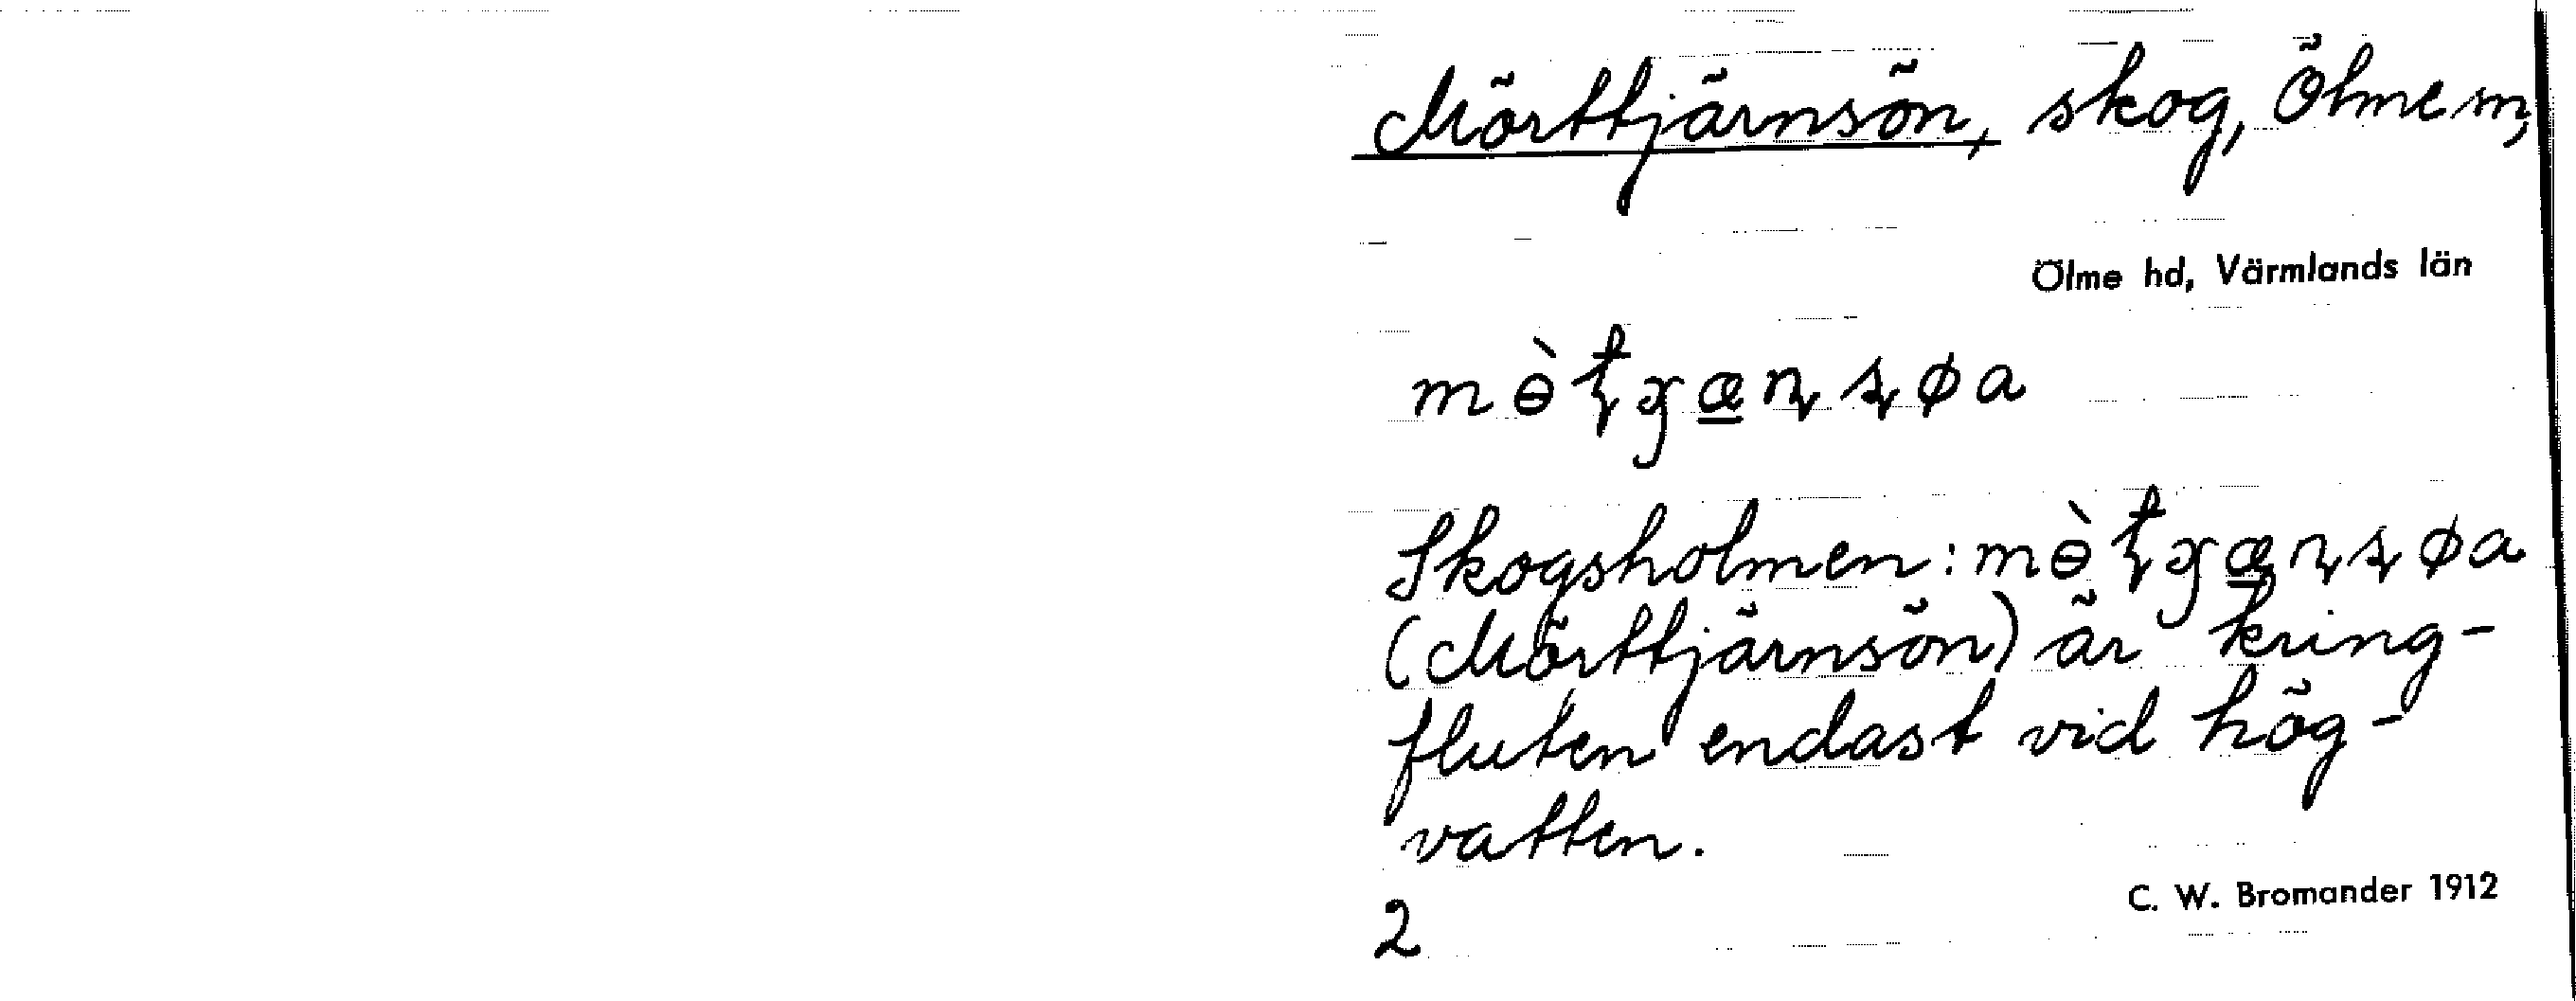 Mörttjärnsön, skog, Ölme sn,
Ölme hd, Värmlands län
mɵ̀ʈɟæ̱ɳʂøa
Skogsholmen: mɵ̀ʈɟæ̱ɳʂøa
(Mörttjärnsön) är kring-
fluten endast vid hög-
vatten.
C. W. Bromander 1912
2